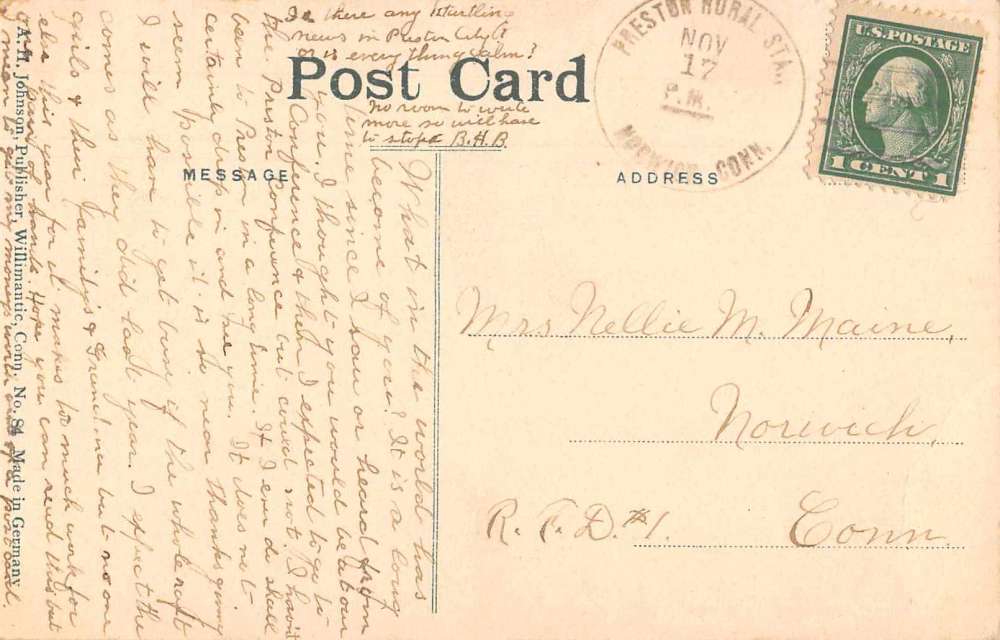 Post Card
MESSAGE
ADDRESS
PRESTON RURAL STA.,
NOV
17
P.M.
NORWICH, CONN.
U.S. POSTAGE
1 CENT 1
Mrs Nellie M. Maine,
Norwich,
R.F.D. #1. Conn.
What in the world has
become of you? It is a long
time since I saw or heard from
you. I thought you would be at our
Conference & then I expected to go to
the Preston Conference but could not. I havn't
been to Preston in a long time. If I ever do shall
certainly drop in and see you. It does not
seem possible it is so near thanksgiving
I will have to get busy if the whole raft
comes as they did last year. I expect the
girls & their family's & but no one
else this year for it makes too much work for
one pair of hands. Hope you can read this but
I mean to get my moneys worth out of a post card.
Is there any startling
news in Preston City?
or is every thing calm?
No room to write
more so will have
to stop. B.H.B.
A. H. Johnson, Publisher, Willimantic, Conn. No. 84 Made in Germany